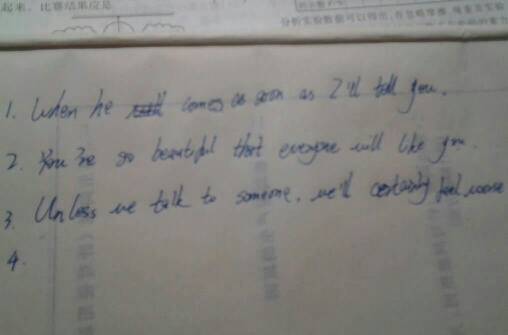 起来，比赛结果应是
分析实验数据可以得出，在忽略摩擦
1. When he comes as soon as I'll tell you.
2. You're so beautiful that everyone will like you.
3. Unless we talk to someone, we'll certainly feel worse
4.